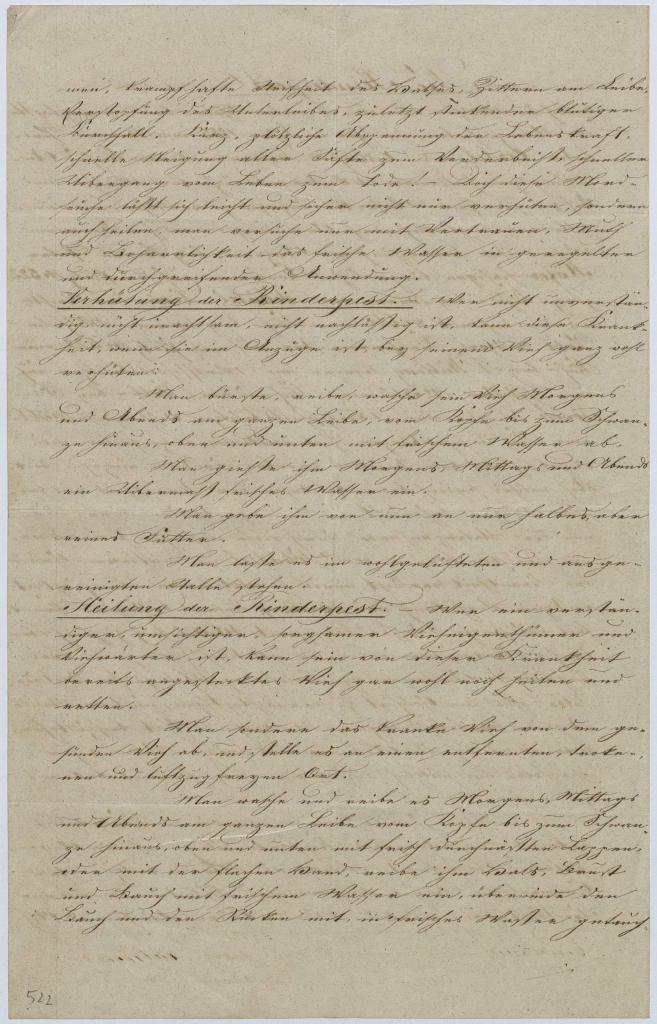 men, krampfhafte Steifheit des Halses, Zittern am Leibe,
Verstopfung des Unterleibes, zuletzt stinkender blutiger
Durchfall. Kurz, plötzliche Abspannung der Lebenskraft,
schnelle Neigung aller Säfte zum Verderbniß, schneller
Uibergang vom Leben zum Tode! – Doch diese Mord-
seuche läßt sich leicht und sicher nicht nur verhüten, sondern
auch heilen, man versuche nur mit Vertrauen, Muth
und Beharrlichkeit das frische Wasser in geregelter
und durchgreifender Anwendung.
Verhütung der Rinderpest. – Wer nicht unverstän-
dig, nicht unachtsam, nicht nachläßig ist, kann diese Krank-
heit, wenn sie im Anzuge ist, bey seinem Vieh ganz wohl
verhüten:
Man bürste, reibe, wasche sein Vieh Morgens
und Abends am ganzen Leibe, vom Kopfe bis zum Schwan-
ze hinaus, oben und unten mit frischem Wasser ab.
Man gieße ihm Morgens, Mittags und Abends
ein Uibermaß frisches Wasser ein.
Man gebe ihm von nun an nur halbes, aber
reines Futter.
Man lasse es im wohlgelüfteten und ausge-
reinigten Stalle stehen.
Heilung der Rinderpest. – Wer ein verstän-
diger, umsichtiger, sorgsamer Vieheigenthümer und
Viehwärter ist, kann sein von dieser Krankheit
bereits angestecktes Vieh gar wohl noch heilen und
retten.
Man sondere das kranke Vieh von dem ge-
sunden Vieh ab, und stelle es an einen entfernten, trocke-
nen und luftzugfreyen Ort.
Man wasche und reibe es Morgens, Mittags
und Abends am ganzen Leibe vom Kopfe bis zum Schwan-
ze hinaus, oben und unten mit frisch durchnäßten Lappen,
oder mit der flachen Hand, reibe ihm Hals, Brust
und Bauch mit frischem Wasser ein, überwinde den
Bauch und den Rücken mit, in frisches Wasser getauch-
522